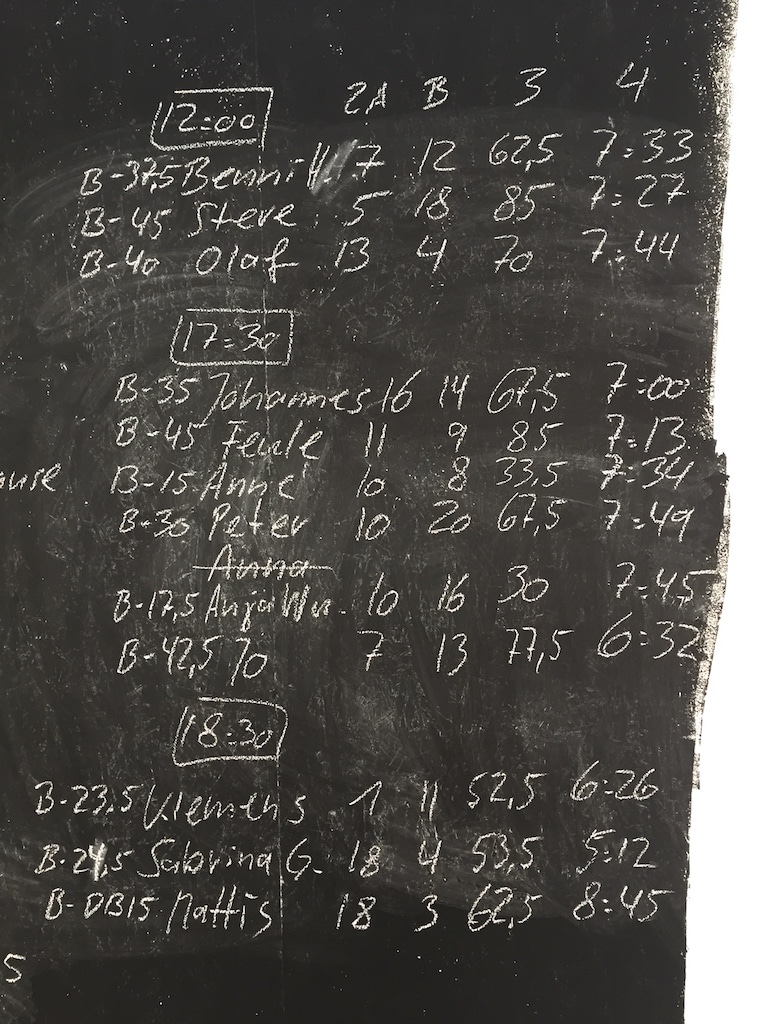 2A B 3 4
12:00
B-37,5 Benni H. 7 12 62,5 7:33
B-45 Steve 5 18 85 7:27
B-40 Olaf 13 4 70 7:44
17:30
B-35 Johannes 16 14 67,5 7:00
B-45 11 9 85 7:13
B-15 Anne 10 8 33,5 7:34
B-30 Peter 10 20 67,5 7:49
Anna
B-17,5 Anja Wu. 10 16 30 7:45
B-42,5 Jo 7 13 77,5 6:32
18:30
B-23.5 Klemens 1 11 52,5 6:26
B-24,5 Sabrina G. 18 4 53,5 5:12
B-DB15 Mattis 18 3 62,5 8:45
5